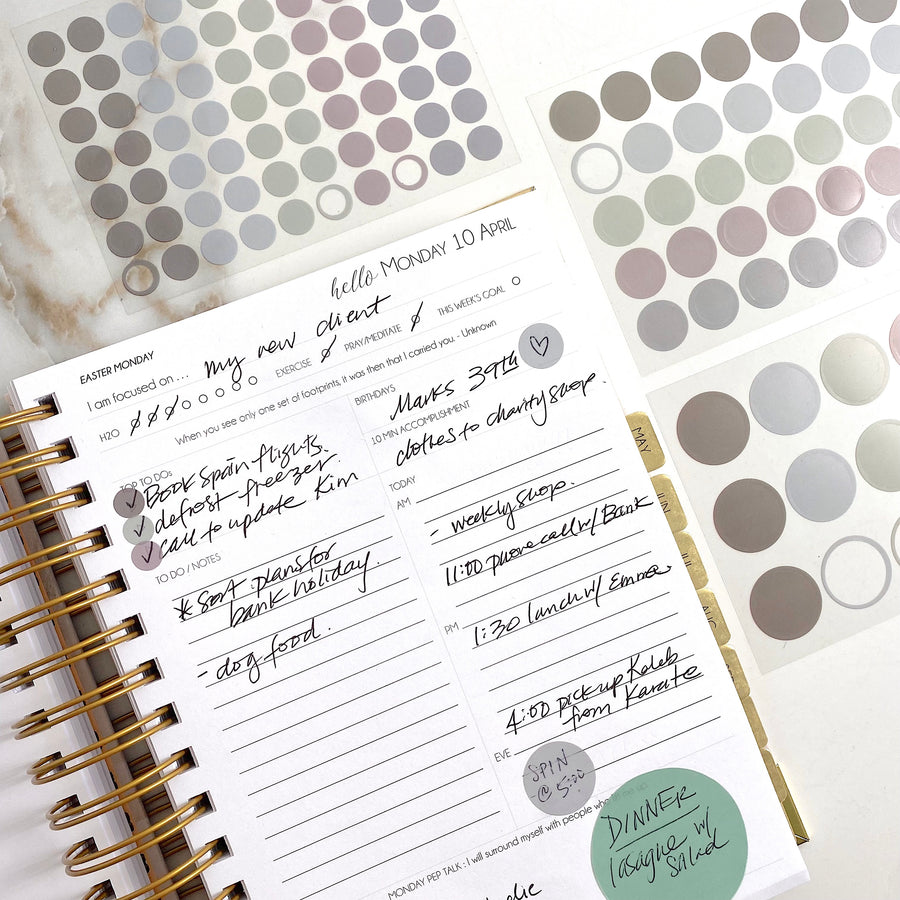 hello MONDAY 10 APRIL
EASTER MONDAY
I am focused on ... my new client
H2O EXERCISE PRAY/MEDITATE THIS WEEK'S GOAL
When you see only one set of footprints, it was then that I carried you. - Unknown
TOP TO DOs
✓ Book Spain flights.
✓ defrost freezer.
✓ call to update Kim
TO DO / NOTES
* Sort plans for
bank holiday.
- dog food.
BIRTHDAYS
Marks 39th ♡
10 MIN ACCOMPLISHMENT
clothes to charity shop.
TODAY
AM
- weekly shop.
11:00 phone call w/ Bank
PM
1:30 lunch w/ Emma
4:00 pick up Kaleb
from Karate
EVE
SPIN
@ 5:
DINNER
lasagne w/
salad
MONDAY PEP TALK : I will surround myself with people who
MAY